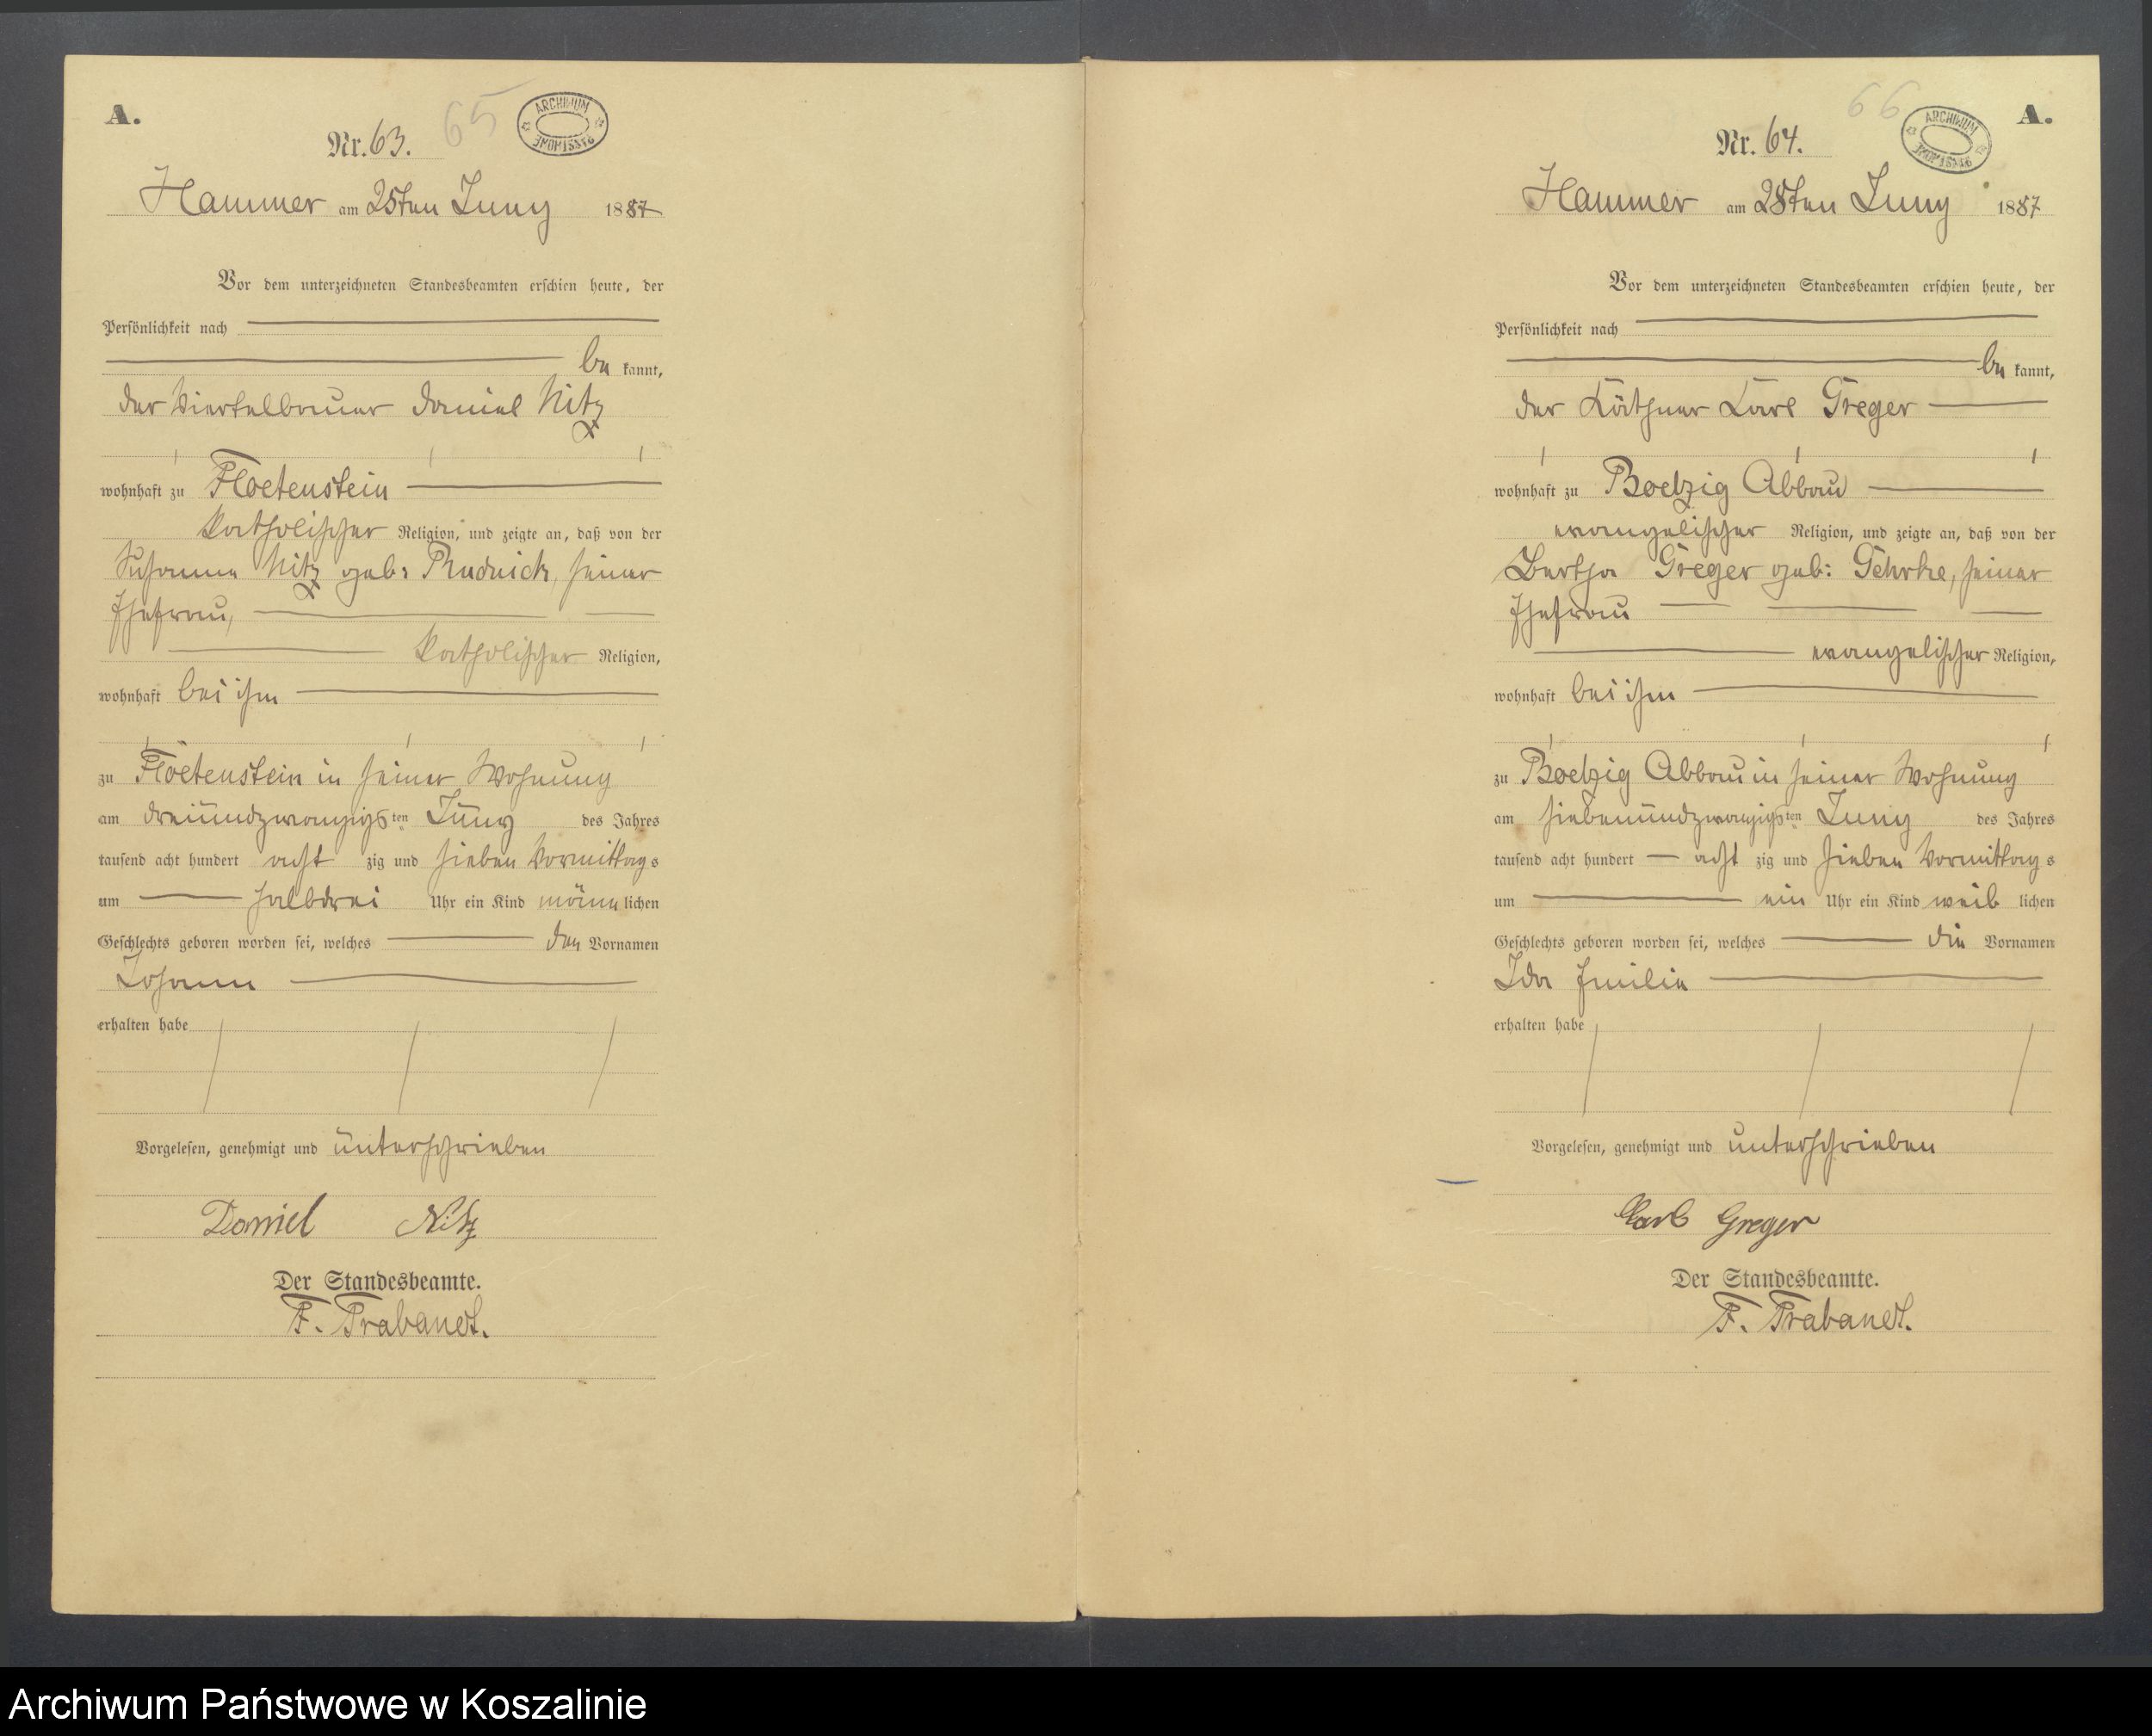 A.
65
ARCHIWUM
Nr. 63.
Hammer am 25ten Juny 1887
Vor dem unterzeichneten Standesbeamten erschien heute, der
Persönlichkeit nach
be kannt,
der Viertelbauer Daniel Nitz
wohnhaft zu Floetenstein
katholischer Religion, und zeigte an, daß von der
Susanna Nitz geb: Rudnick, seiner
Ehefrau,
katholischer Religion,
wohnhaft bei ihm
zu Floetenstein in seiner Wohnung
am dreiundzwanzigsten Juny des Jahres
tausend acht hundert acht zig und sieben Vormittags
um halbdrei Uhr ein Kind männ lichen
Geschlechts geboren worden sei, welches den Vornamen
Johann
erhalten habe
Vorgelesen, genehmigt und unterschrieben
Daniel Nitz
Der Standesbeamte.
F. Trabandt.
66
ARCHIWUM
A.
Nr. 64.
Hammer am 28ten Juny 1887
Vor dem unterzeichneten Standesbeamten erschien heute, der
Persönlichkeit nach
be kannt,
der Käthner Karl Greger
wohnhaft zu Boelzig Abbau
evangelischer Religion, und zeigte an, daß von der
Bertha Greger geb: Gehrke, seiner
Ehefrau
evangelischer Religion,
wohnhaft bei ihm
zu Boelzig Abbau in seiner Wohnung
am siebenundzwanzigsten Juny des Jahres
tausend acht hundert acht zig und sieben Vormittags
um ein Uhr ein Kind weib lichen
Geschlechts geboren worden sei, welches die Vornamen
Ida Emilie
erhalten habe
Vorgelesen, genehmigt und unterschrieben
Karl Greger
Der Standesbeamte.
F. Trabandt.
Archiwum Państwowe w Koszalinie